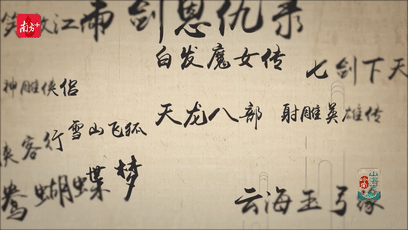 南方+
江
剑恩仇录
白发魔女传
七剑下天
神雕侠侣
天龙八部
射雕英雄传
雪山飞狐
客行
鸯蝴蝶梦
云海玉弓缘